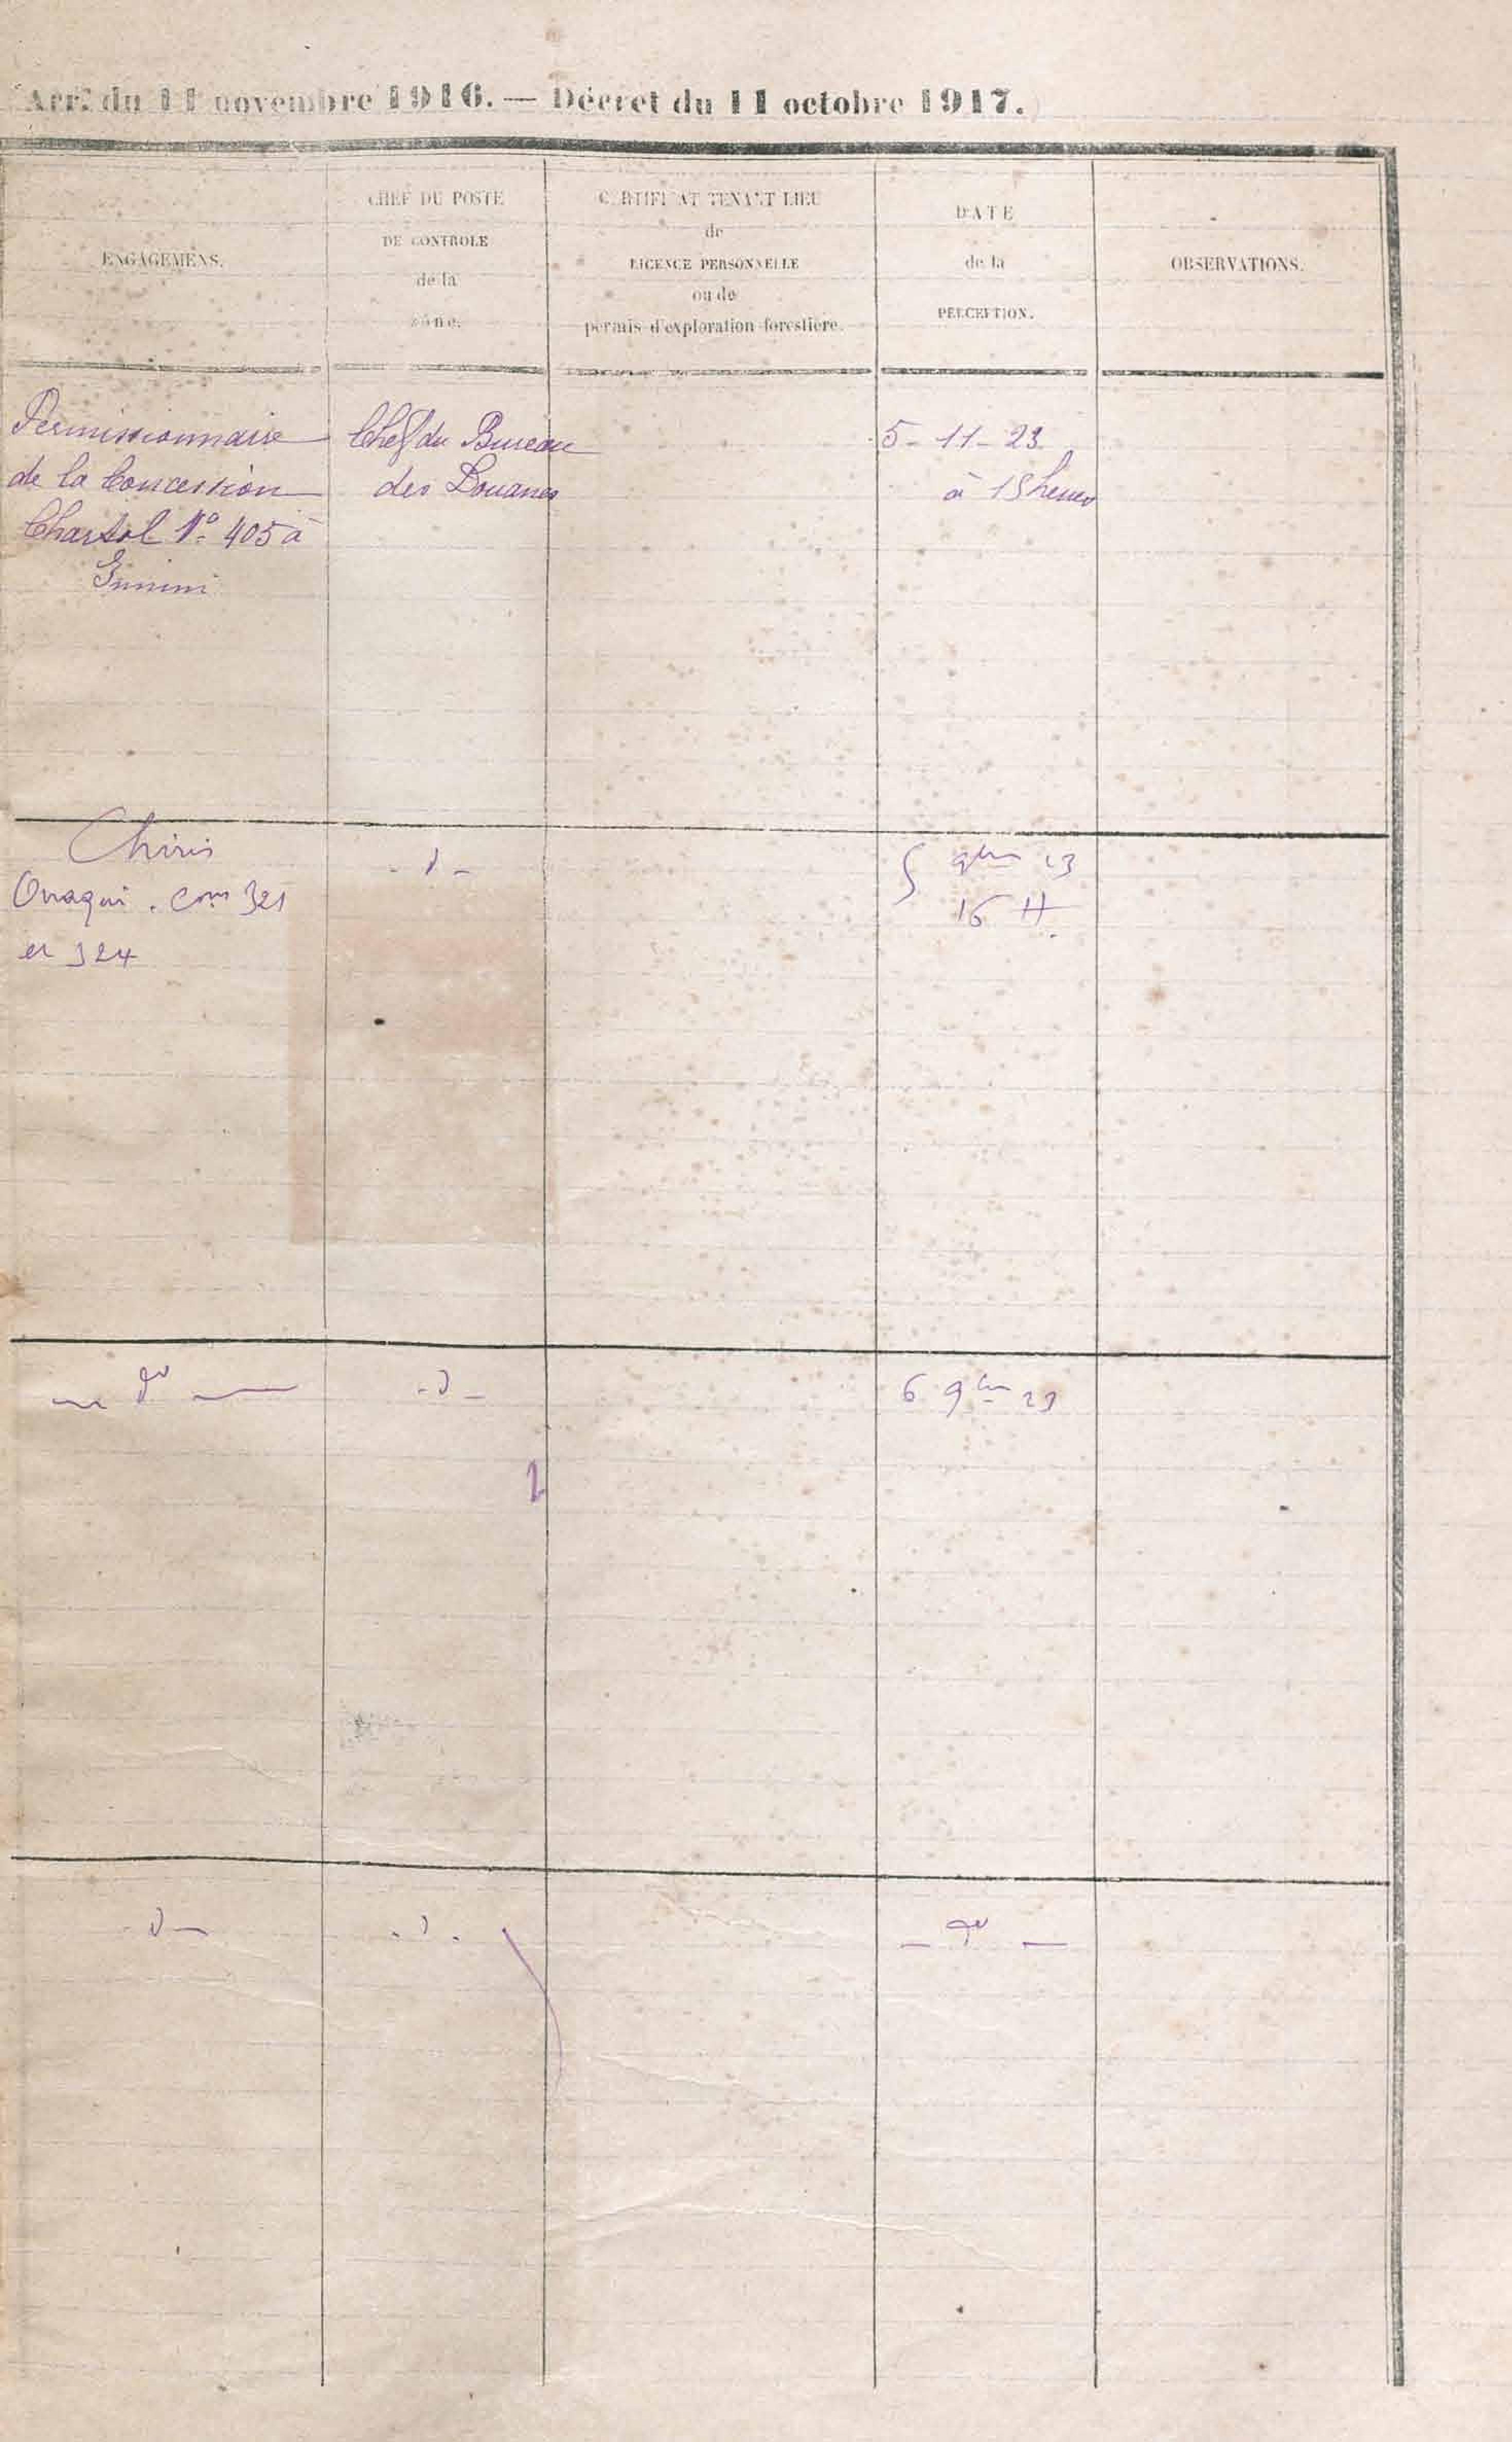 Arr. du 11 novembre 1916. — Décret du 11 octobre 1917.
ENGAGEMENS.
CHEF DU POSTE
DE CONTROLE
de la
zône.
CERTIFICAT TENANT LIEU
de
LICENCE PERSONNELLE
ou de
permis d'exploration forestière.
DATE
de la
PERCEPTION.
OBSERVATIONS.
Permissionnaire
de la Concession
Chartol N° 405 à
Chef du Bureau
des Douanes
5-11-23
à 15 heures
Chiris
Ouaqui. Con 321
et 324
- d -
5 9bre 23
16 H.
— do —
- d -
6 9bre 23
- d -
- d -
— do —